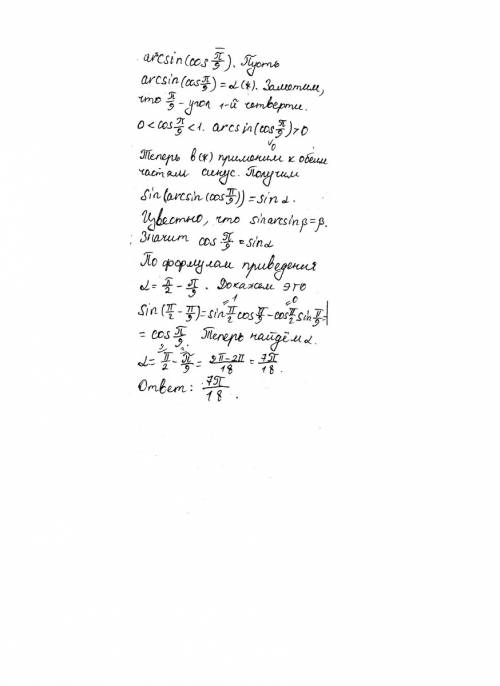 arcsin(cos π/9). Пусть
arcsin(cos π/9) = α (*). Заметим,
что π/9 - угол 1-й четверти.
0 < cos π/9 < 1. arcsin(cos π/9) > 0
Теперь в (*) применим к обеим
частям синус. Получим
sin(arcsin(cos π/9)) = sin α.
Известно, что sin arcsin β = β.
Значит cos π/9 = sin α
По формулам приведения
α = π/2 - π/9. Докажем это
sin(π/2 - π/9) = sin π/2 cos π/9 - cos π/2 sin π/9 =
= cos π/9. Теперь найдём α.
α = π/2 - π/9 = (9π - 2π)/18 = 7π/18.
Ответ: 7π/18.